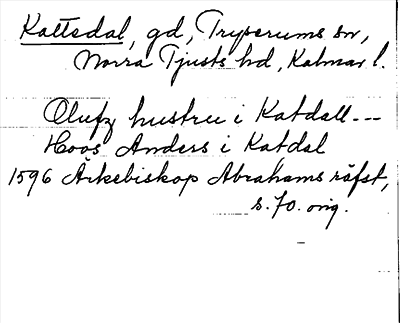 Kattsdal, gd, Tryserums sn,
Norra Tjusts hd, Kalmar l.
Olufz hustru i Katdall---
Hoos Anders i Katdal
1596 Ärkebiskop Abrahams räfst,
s. 70. orig.